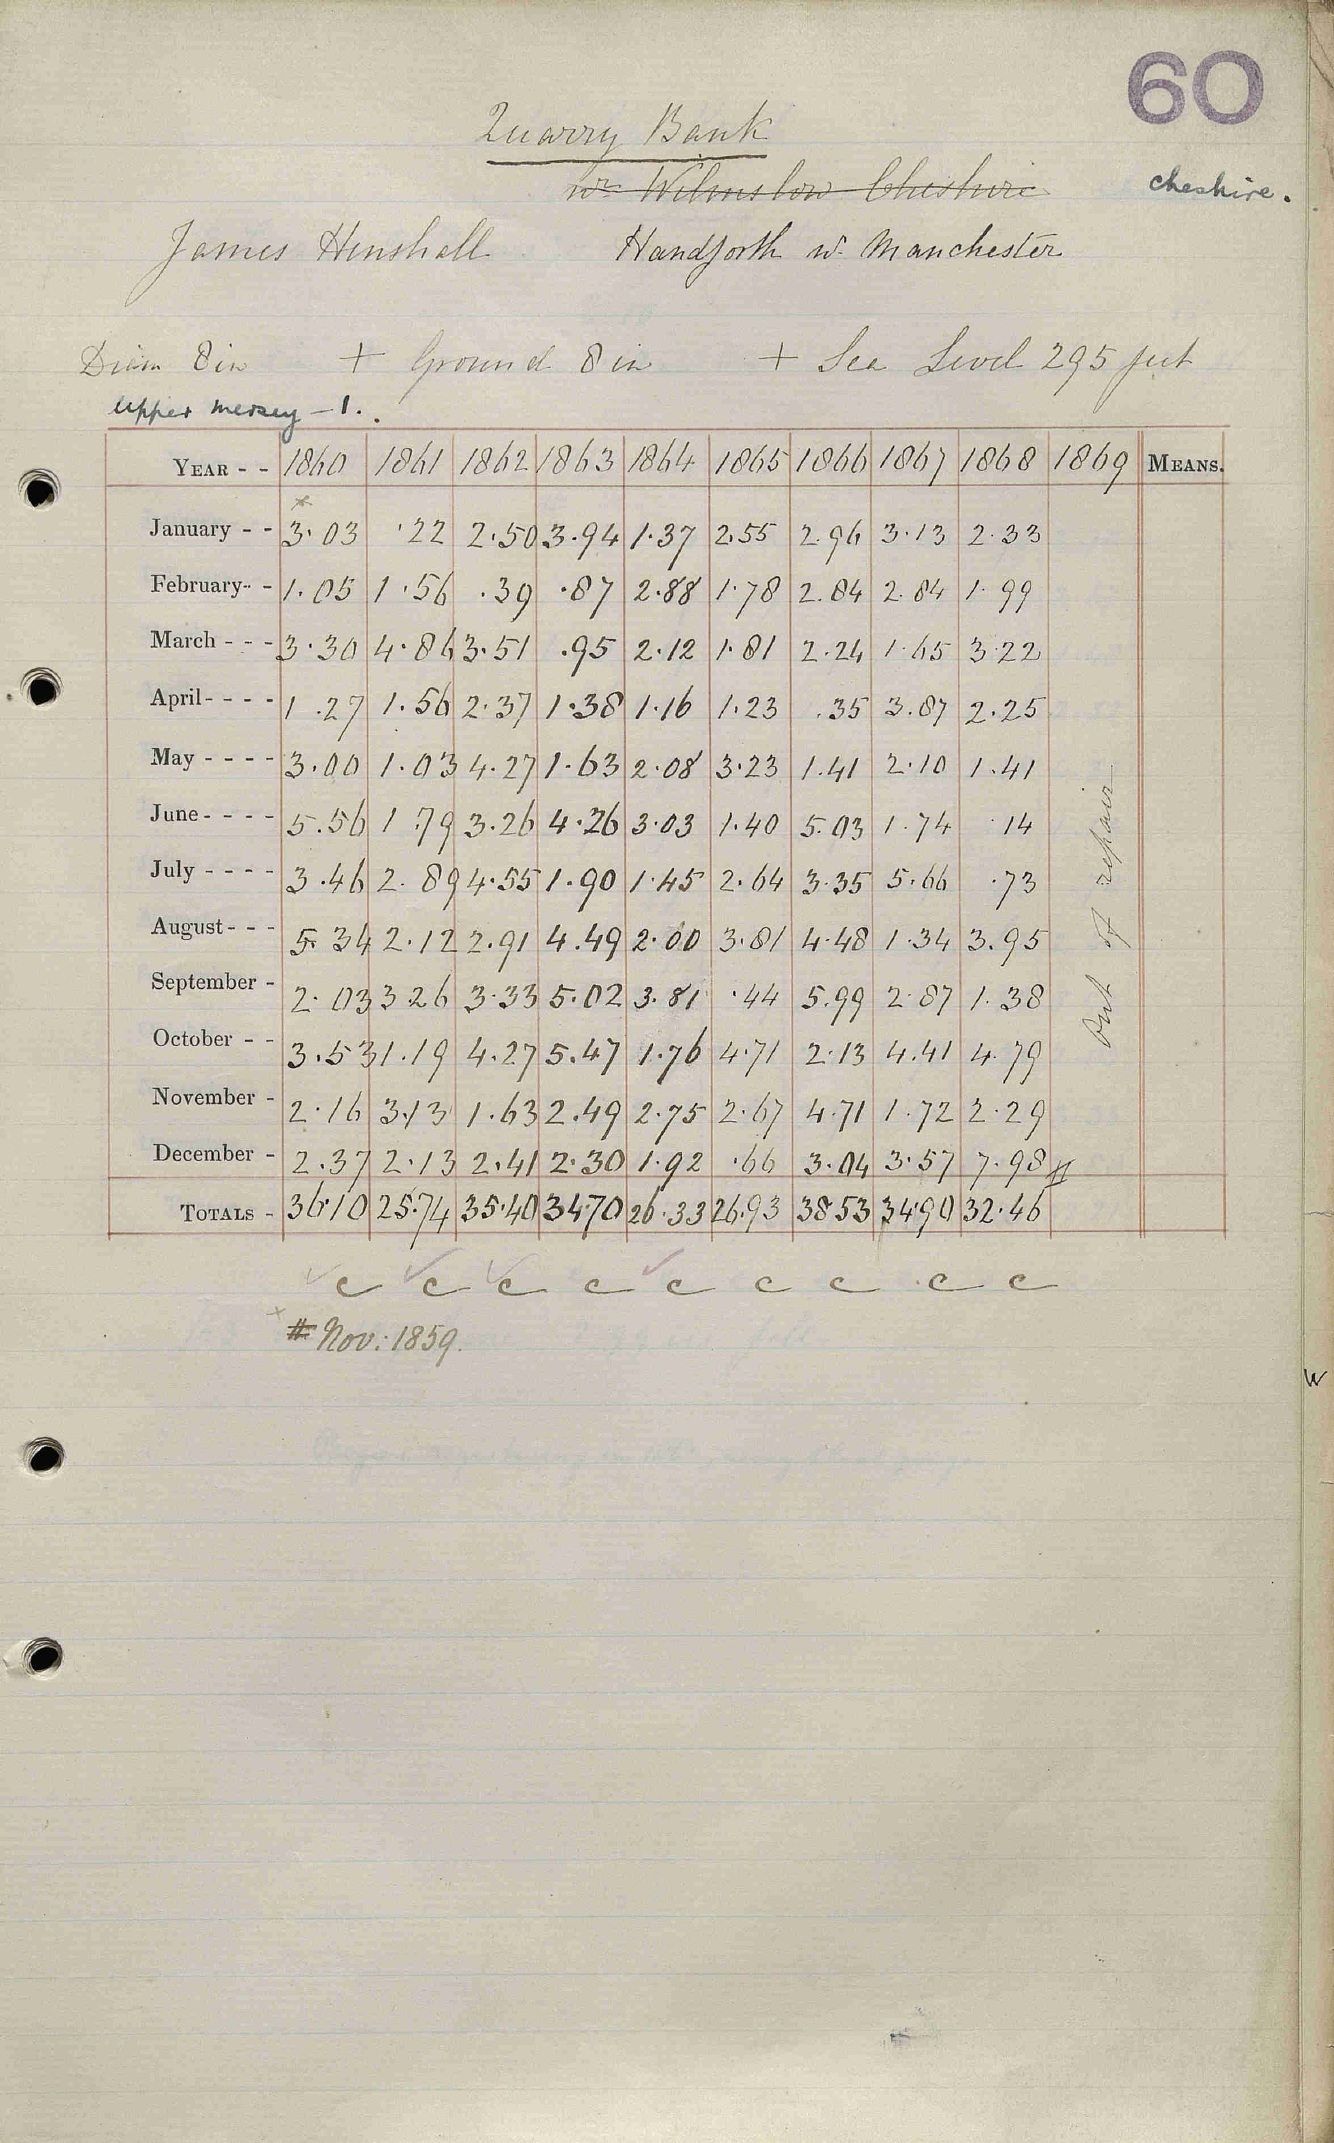 60
Quarry Bank
nr Wilmslow Cheshire
cheshire.
James Henshall Handforth nr Manchester
Diam 8 in + Ground 8 in + Sea Level 295 feet
Upper Mersey - 1.
YEAR - - 1860 1861 1862 1863 1864 1865 1866 1867 1868 1869 MEANS.
January - - 3.03 .22 2.50 3.94 1.37 2.55 2.96 3.13 2.33
February - - 1.05 1.56 .39 .87 2.88 1.78 2.84 2.84 1.99
March - - - 3.30 4.86 3.51 .95 2.12 1.81 2.24 1.65 3.22
April - - - - 1.27 1.56 2.37 1.38 1.16 1.23 .35 3.87 2.25
May - - - - 3.00 1.03 4.27 1.63 2.08 3.23 1.41 2.10 1.41
June - - - - 5.56 1.79 3.26 4.26 3.03 1.40 5.03 1.74 .14
July - - - - 3.46 2.89 4.55 1.90 1.45 2.64 3.35 5.66 .73
August - - - 5.34 2.12 2.91 4.49 2.00 3.81 4.48 1.34 3.95
September - 2.03 3.26 3.33 5.02 3.81 .44 5.99 2.87 1.38
October - - 3.53 1.19 4.27 5.47 1.76 4.71 2.13 4.41 4.79
November - 2.16 3.13 1.63 2.49 2.75 2.67 4.71 1.72 2.29
December - 2.37 2.13 2.41 2.30 1.92 .66 3.04 3.57 7.98 #
TOTALS - 36.10 25.74 35.40 34.70 26.33 26.93 38.53 34.90 32.46
Out of repair
c c c c c c c c c
# Nov: 1859.
W